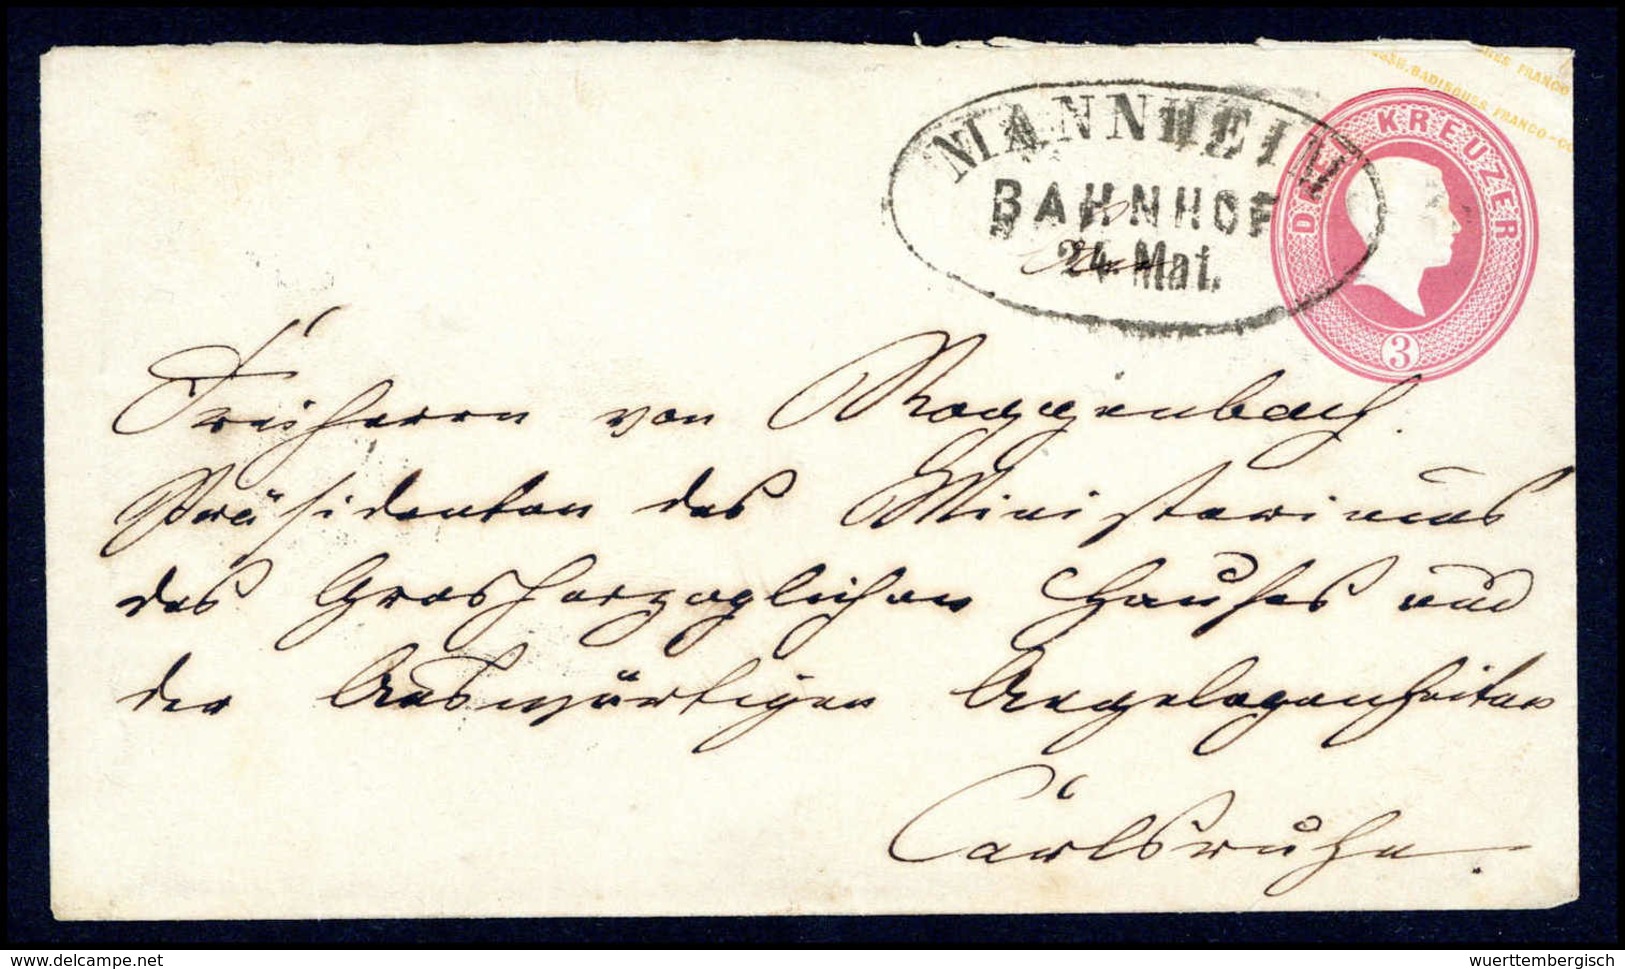 HES FRANCO
SSH. BADINGHES FRANCO-CO
MANNHEIM
BAHNHOF
24. Mai.
DREI KREUZER
3
Freiherrn von Roggenbach.
Präsidenten des Ministeriums
des Grosherzoglichen Hauses und
der Auswärtigen Angelegenheiten
Carlsruhe.
www.delcampe.net
wuerttembergisch